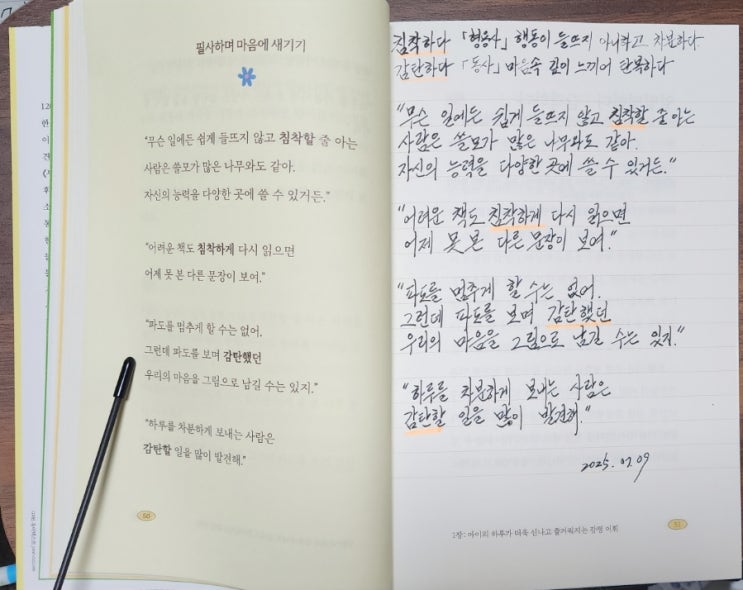 필사하며 마음에 새기기
"무슨 일에든 쉽게 들뜨지 않고 침착할 줄 아는
사람은 쓸모가 많은 나무와도 같아.
자신의 능력을 다양한 곳에 쓸 수 있거든."
"어려운 책도 침착하게 다시 읽으면
어제 못 본 다른 문장이 보여."
"파도를 멈추게 할 수는 없어.
그런데 파도를 보며 감탄했던
우리의 마음을 그림으로 남길 수는 있지."
"하루를 차분하게 보내는 사람은
감탄할 일을 많이 발견해."
50
침착하다 「형용사」 행동이 들뜨지 아니하고 차분하다
감탄하다 「동사」 마음속 깊이 느끼어 탄복하다
"무슨 일에든 쉽게 들뜨지 않고 침착할 줄 아는
사람은 쓸모가 많은 나무와도 같아.
자신의 능력을 다양한 곳에 쓸 수 있거든."
"어려운 책도 침착하게 다시 읽으면
어제 못 본 다른 문장이 보여."
"파도를 멈추게 할 수는 없어.
그런데 파도를 보며 감탄했던
우리의 마음을 그림으로 남길 수는 있지."
"하루를 차분하게 보내는 사람은
감탄할 일을 많이 발견해."
2025. 09
1장: 아이의 하루가 더욱 신나고 즐거워지는 감정 어휘
51